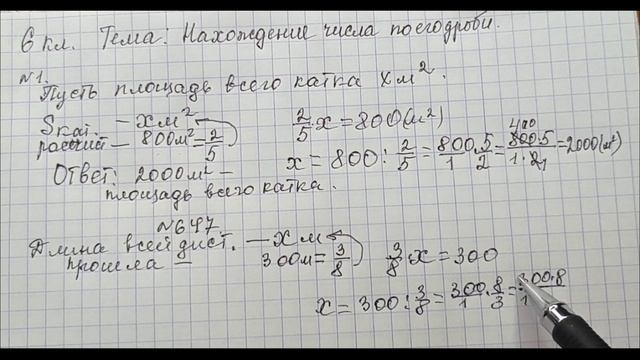 6 кл. Тема: Нахождение числа по его дроби.
№1.
Пусть площадь всего катка х м².
Sкат. — х м²
расчист — 800 м² = 2/5
2/5 · х = 800 (м²)
х = 800 : 2/5 = 800/1 · 5/2 = 800·5/1·2 = 2000 (м²)
400
1
Ответ: 2000 м² —
площадь всего катка.
№647
Длина всей дист. — х м
прошла — 300 м = 3/8
3/8 · х = 300
х = 300 : 3/8 = 300/1 · 8/3 = 300·8/1